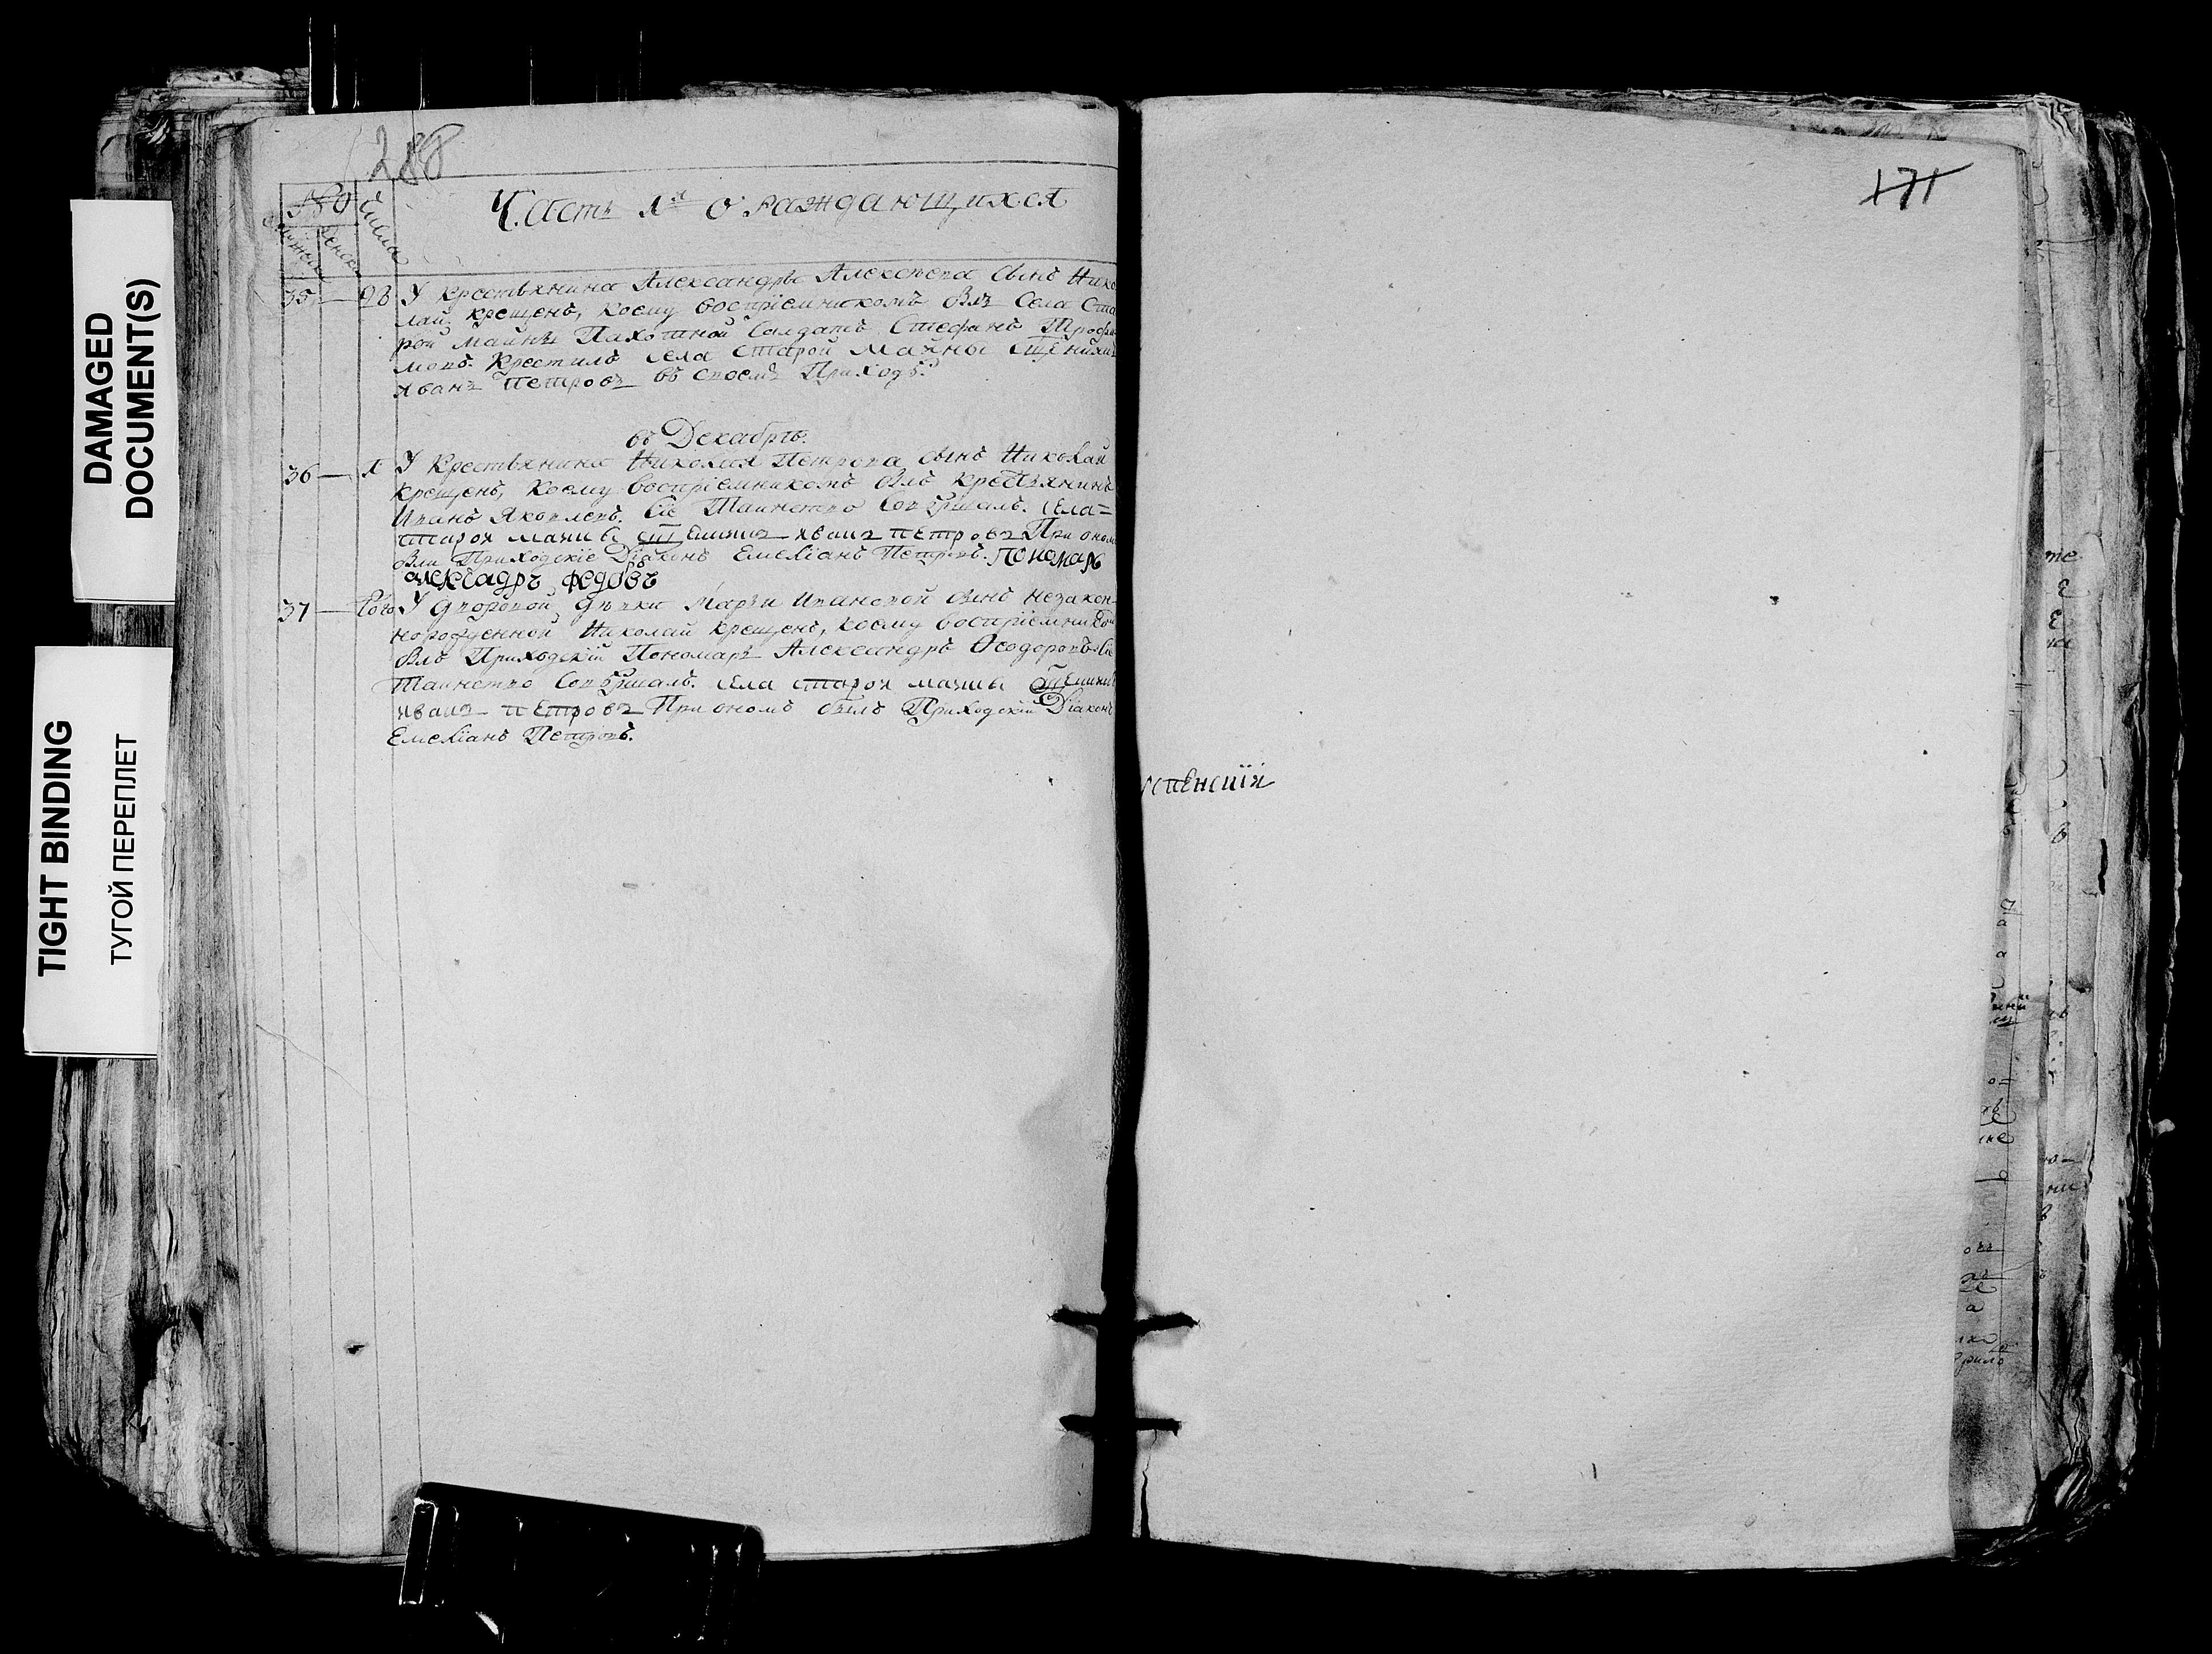 DAMAGED
DOCUMENT(S)
TIGHT BINDING
ТУГОЙ ПЕРЕПЛЕТ
288
Числа
Часть 1я о раждающихся
35 28 У крестьянина Александра Алексѣева сынъ Нико
лай крещенъ, коему воспріемникомъ былъ Села Ста
рой Майны Пахотной Солдатъ Стефанъ Трофи
мовъ. Крестилъ села старой майны сщенникъ
иванъ петровъ въ своемъ Приходѣ.
въ Декабрѣ.
36 1 У Крестьянина Николая Петрова сынъ Николай
крещенъ, коему воспріемникомъ былъ крестьянинъ
Иванъ Яковлевъ. Сіе Таинство Совершалъ. села=
старой майны сщенникъ иванъ петровъ При ономъ
были Приходскіе Діаконъ Емеліанъ Петровъ. Пономарь
алеѯадръ федоровъ
37 того У дворовой дѣвки Марьи Ивановой сынъ незакон-
норожденной Николай крещенъ, коему воспріемником
былъ Приходскій Пономарь Александръ Ѳеодоровъ. Сіе
Таинство Совершалъ. села старой майны сщенникъ
иванъ петровъ При ономъ былъ Приходскій Діаконъ
Емеліанъ Петровъ.
171
успенскій